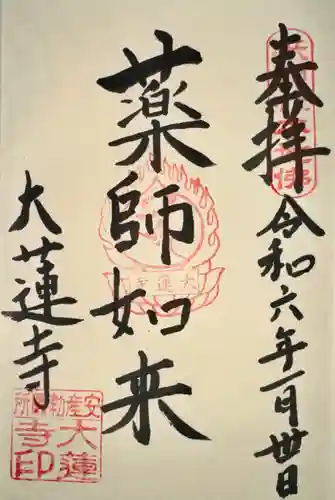 奉拝 令和六年一月廿日
薬師如来
大蓮寺
大蓮寺
安産勅願所
大蓮
寺印